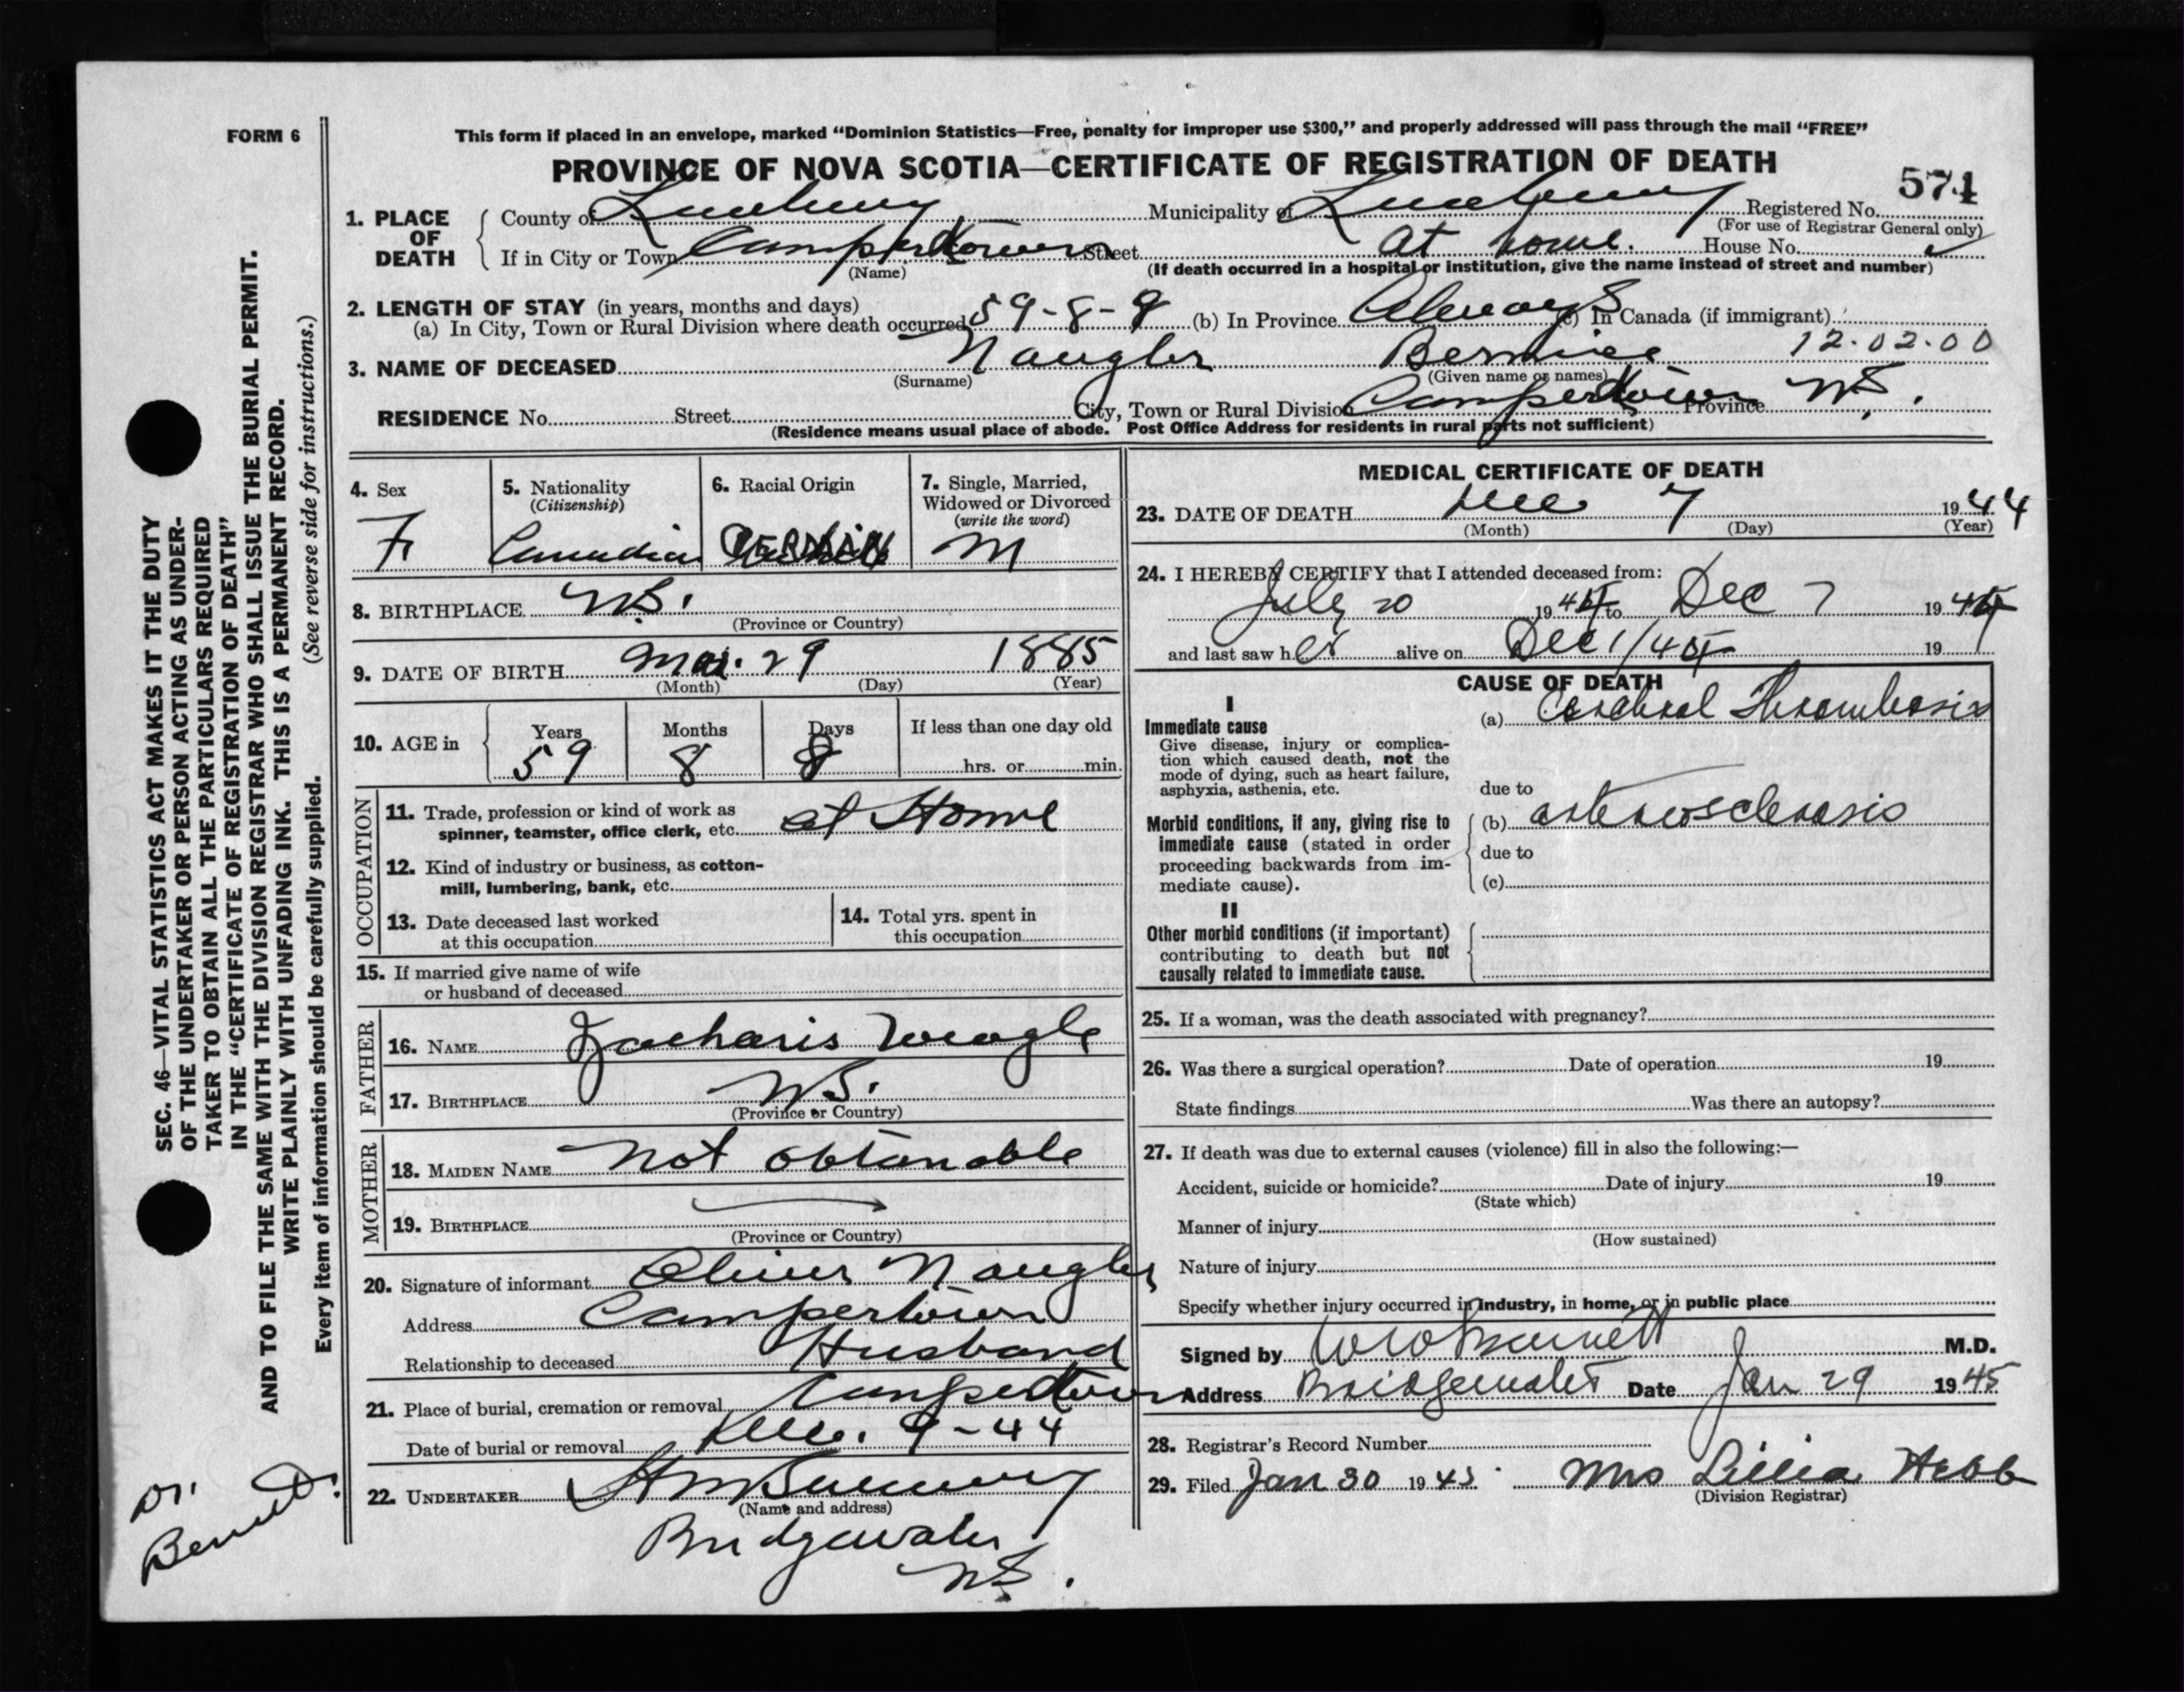 FORM 6
This form if placed in an envelope, marked “Dominion Statistics—Free, penalty for improper use $300,” and properly addressed will pass through the mail “FREE”
PROVINCE OF NOVA SCOTIA—CERTIFICATE OF REGISTRATION OF DEATH
574
1. PLACE OF DEATH
County of Lunenburg Municipality of Lunenburg Registered No.
(For use of Registrar General only)
If in City or Town Camperdown Street At home. House No.
(Name)
(If death occurred in a hospital or institution, give the name instead of street and number)
2. LENGTH OF STAY (in years, months and days)
(a) In City, Town or Rural Division where death occurred 59-8-8 (b) In Province Always (c) In Canada (if immigrant)
12.02.00
3. NAME OF DECEASED Naugler Bernice
(Surname) (Given name or names)
RESIDENCE No. Street City, Town or Rural Division Camperdown Province N.S.
(Residence means usual place of abode. Post Office Address for residents in rural parts not sufficient)
4. Sex
F
5. Nationality
(Citizenship)
Canadian
6. Racial Origin
GERMAN
7. Single, Married,
Widowed or Divorced
(write the word)
M
8. BIRTHPLACE N.S.
(Province or Country)
9. DATE OF BIRTH Mar. 29 1885
(Month) (Day) (Year)
10. AGE in
Years Months Days If less than one day old
59 8 8 hrs. or min.
OCCUPATION
11. Trade, profession or kind of work as
spinner, teamster, office clerk, etc. at Home
12. Kind of industry or business, as cotton-
mill, lumbering, bank, etc.
13. Date deceased last worked
at this occupation
14. Total yrs. spent in
this occupation
15. If married give name of wife
or husband of deceased
FATHER
16. NAME Zacharis Weagle
17. BIRTHPLACE N.S.
(Province or Country)
MOTHER
18. MAIDEN NAME Not obtanable
19. BIRTHPLACE
(Province or Country)
20. Signature of informant Oliver Naugler
Address Camperdown
Relationship to deceased Husband
21. Place of burial, cremation or removal Camperdown
Date of burial or removal Dec. 9-44
22. UNDERTAKER
(Name and address)
Bridgewater
N.S.
MEDICAL CERTIFICATE OF DEATH
23. DATE OF DEATH Dec 7 1944
(Month) (Day) (Year)
24. I HEREBY CERTIFY that I attended deceased from:
July 20 1944 to Dec 7 1944
and last saw her alive on Dec 1/44 19
CAUSE OF DEATH
I
Immediate cause
Give disease, injury or complica-
tion which caused death, not the
mode of dying, such as heart failure,
asphyxia, asthenia, etc.
(a) Cerebral Thrombosis
due to
Morbid conditions, if any, giving rise to
immediate cause (stated in order
proceeding backwards from im-
mediate cause).
(b) arteriosclerosis
due to
(c)
II
Other morbid conditions (if important)
contributing to death but not
causally related to immediate cause.
25. If a woman, was the death associated with pregnancy?
26. Was there a surgical operation? Date of operation 19
State findings Was there an autopsy?
27. If death was due to external causes (violence) fill in also the following:—
Accident, suicide or homicide? Date of injury 19
(State which)
Manner of injury
(How sustained)
Nature of injury
Specify whether injury occurred in industry, in home, or in public place
Signed by W W Bennett M.D.
Address Bridgewater Date Jan 29 1945
28. Registrar's Record Number
29. Filed Jan 30 1945. Mrs Lillia Hebb
(Division Registrar)
SEC. 46—VITAL STATISTICS ACT MAKES IT THE DUTY
OF THE UNDERTAKER OR PERSON ACTING AS UNDER-
TAKER TO OBTAIN ALL THE PARTICULARS REQUIRED
IN THE “CERTIFICATE OF REGISTRATION OF DEATH”
AND TO FILE THE SAME WITH THE DIVISION REGISTRAR WHO SHALL ISSUE THE BURIAL PERMIT.
WRITE PLAINLY WITH UNFADING INK. THIS IS A PERMANENT RECORD.
(See reverse side for instructions.)
Every item of information should be carefully supplied.
Dr.